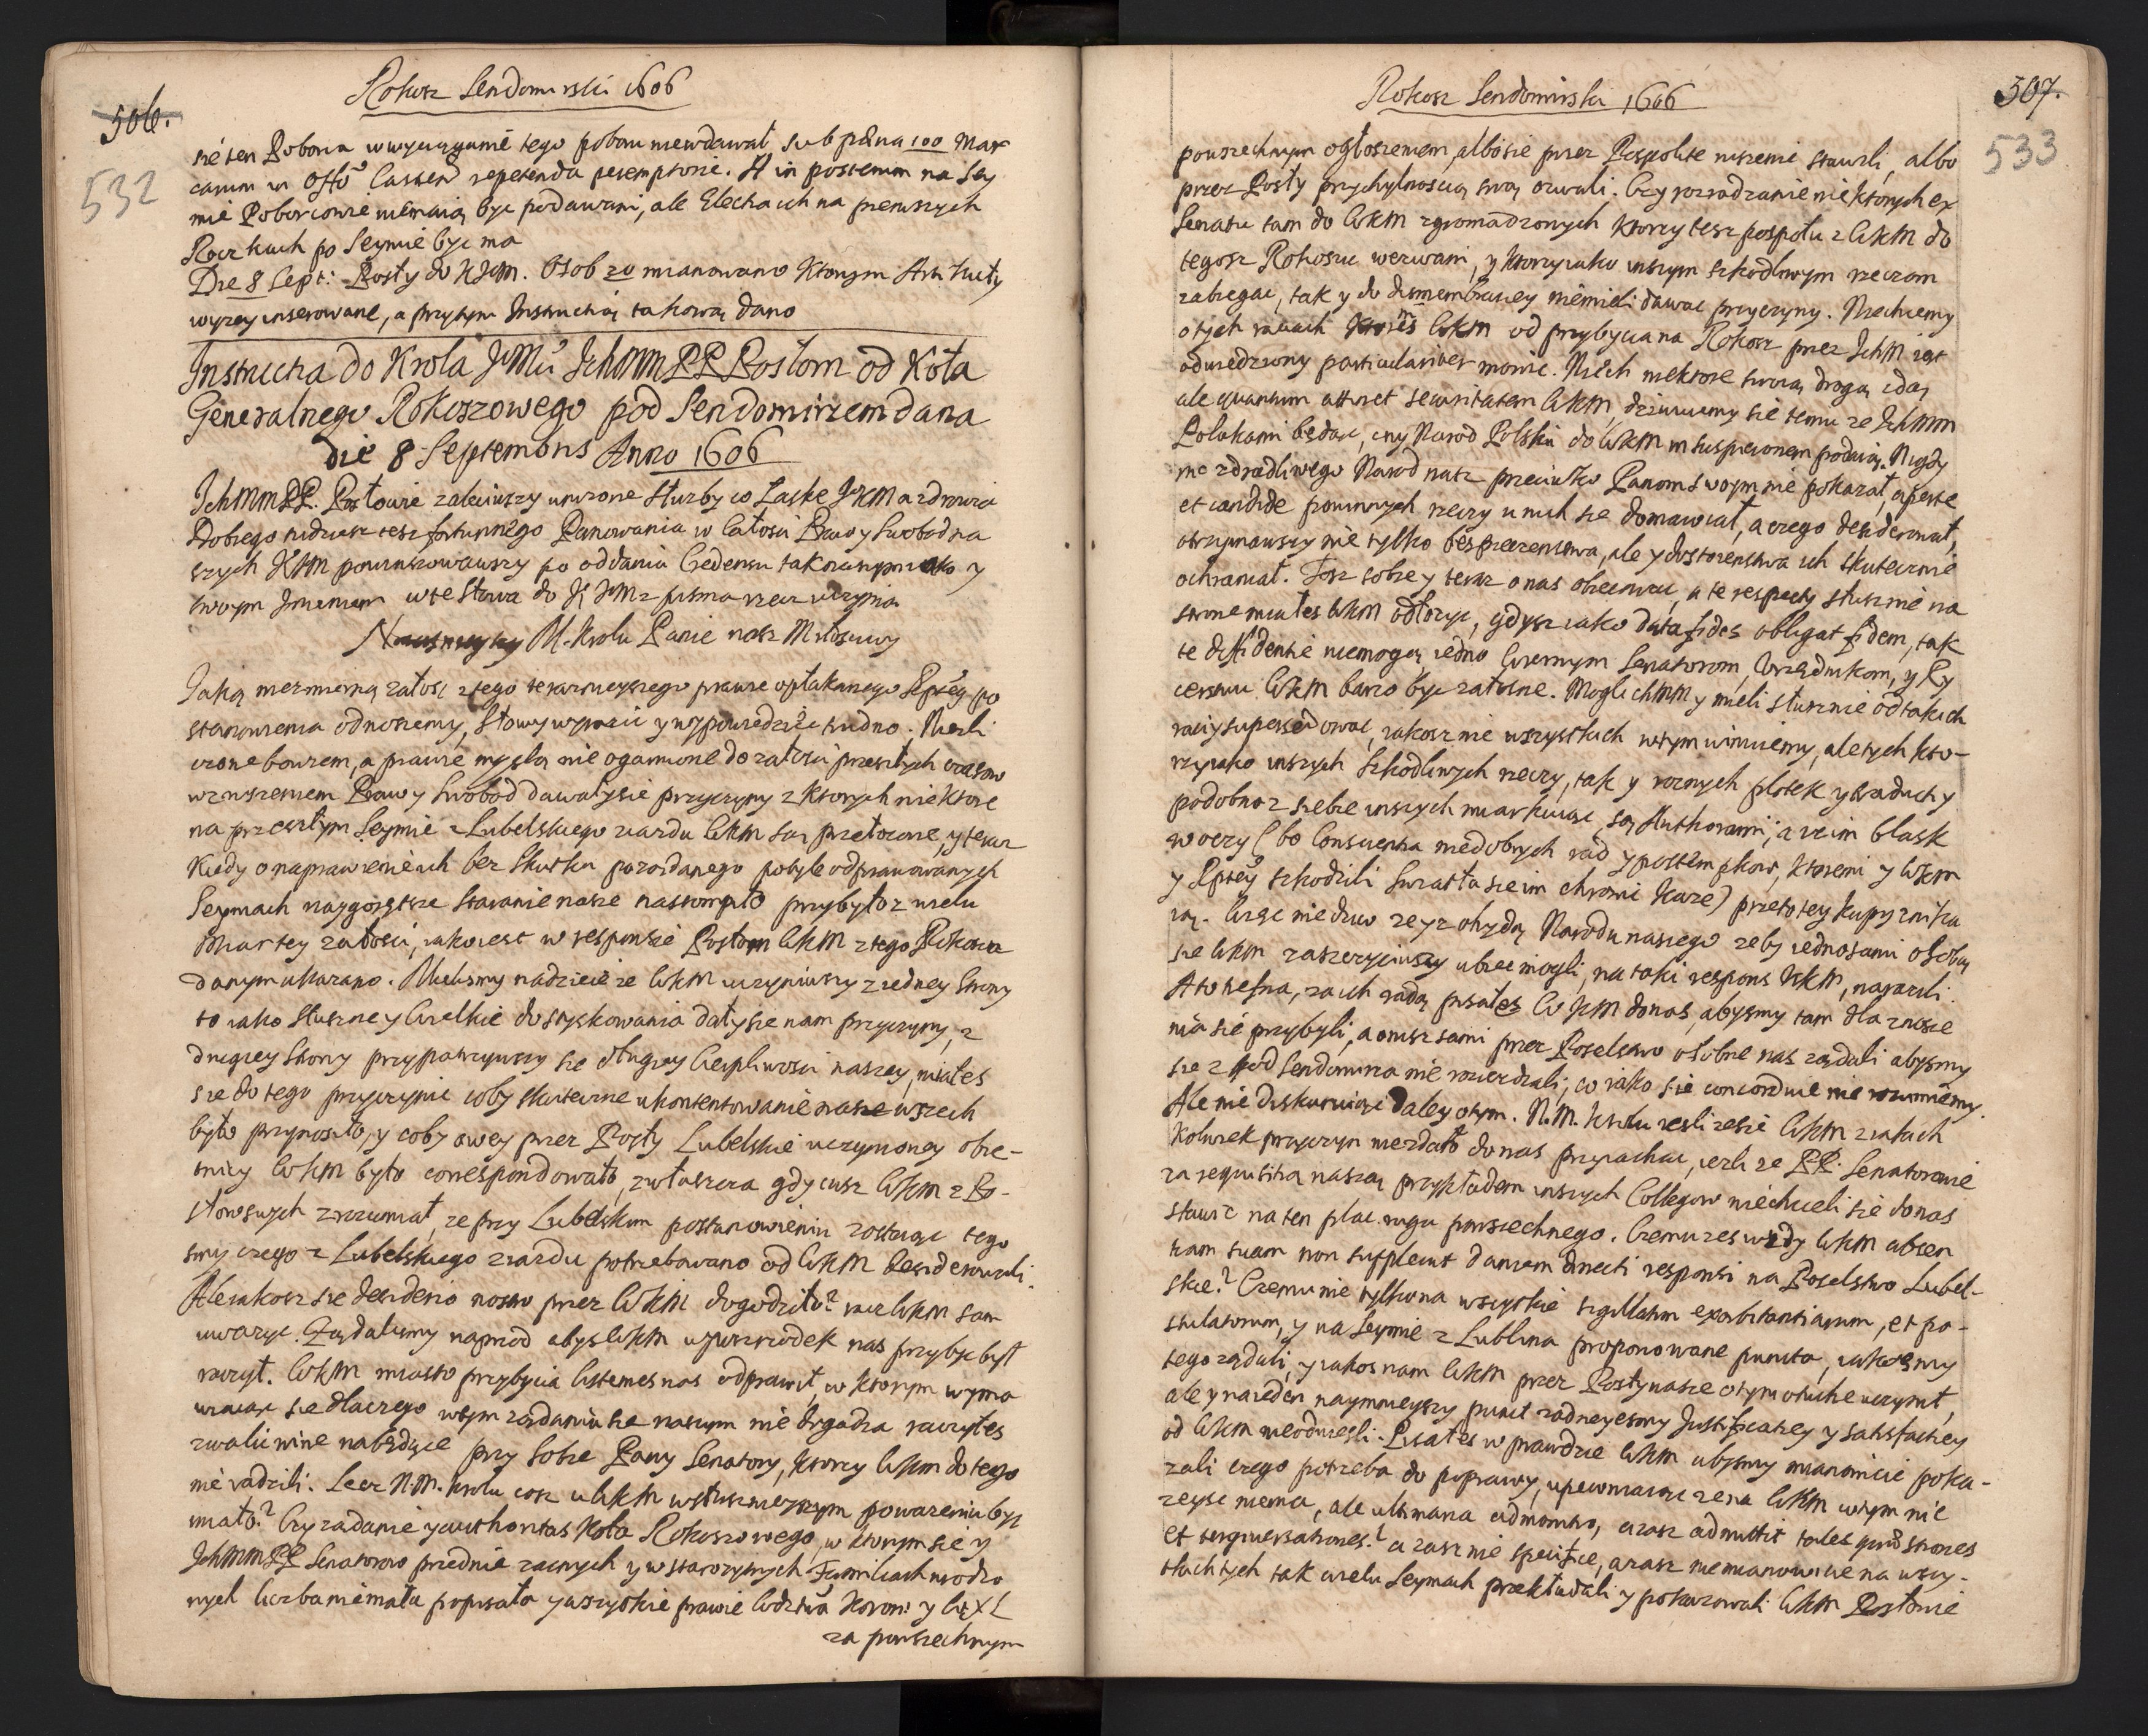 506.
532
Rokosz Sendomirski 1606
sie ten Poborca w wyciąganiu tego poboru niewdawał, sub pœna 100 Mar
carum in Offõ Castren repetenda peremptorie. A in posterum na Sey
mie Poborcowie niemaią być podawani, ale Electia ich na pierwszych
Roczkach po Seymie być ma
Die 8 Sept: Posły do KJM. Osob 20 mianowano Ktorym Artikuły
wyzey inserowane, a przytym Instructią takową dano
Instructia do Krola JeMCi JchMM PP Posłom od Koła
Generalnego Rokoszowego pod Sendomirzem dana
die 8 Septembris Anno 1606
JchMMPP. Posłowie zaleciwszy unizone Służby w Łaskę JKM a zdrowia
Dobrego niemniey tesz fortunnego Panowania w całości Praw y Swobod na
szych JKM powinszowawszy po oddaniu Credensu tak naszym iako y
swoym Jmieniem w te słowa do KJM z pisma rzecz uczynią
M. Krolu Panie nasz Miłosciwy
Jaką niezmierną załosc z tego terazniejszego prawie opłakanego Rptey po
stanowienia odnosiemy, Słowy wyrazić y wypowiedzieć trudno. Niezli
czone bowiem, a prawie myslą nie ogarnione do załosci przeszłych czasow
wzruszeniem Prawy Swobod dawałysie przyczyny z ktorych niektore
na przeszłym Seymie z Lubelskiego ziazdu WKM są przełozone, y teraz
Kiedy o naprawienie ich bez Skutku poządanego po tyle odprawowanych
Seymach naygorętsze staranie nasze nastąmpiło przybyło z wielu
miar tey załosci, iakoiest w responsie Posłom WKM z tego Rokoszu
danym ukazano. Mielismy nadzieie ze WKM uczyniwszy z iedney strony
to iako Słuszne y Wielkie do styskowania dały sie nam przyczyny, z
drugiey strony przypatrzywszy sie długiey Cierpliwosci naszey, miałes
sie do tego przyczynic coby skuteczne ukontentowanie nasze wszech
było przynosiło, y coby owey przez Posły Lubelskie uczynioney obie-
tnicy WKM było correspondowało, zwłaszcza gdy iusz WKM z Po-
słow swych zrozumiał, ze przy Lubelskim postanowieniu zostaiąc tego
smy czego z Lubelskiego ziazdu potrzebowano od WKM desiderowali.
Ale iakosz sie desiderio nostro przez WKM dogodziło? racz WKM sam
uwazyc. Ządalismy naprzod abys WKM w poszrzodek nas przybyc był
raczył. WKM miasto przybycia listemes nas odprawił, w ktorym wyma
wiaiąc sie dlaczego w tym ządaniu sie naszym nie dogadza raczyłes
zwalic wine na będące przy Sobie Pany Senatory, ktorzy WKM do tego
nie radzili. Lecz N.M. Krolu cosz u WKM w słusznieyszym powazeniu być
miało? Czy ządanie y authoritas Koła Rokoszowego, w ktorym sie y
JchMMPP Senatorow przednie zacnych y w starozytnych Familiach urodzo
nych liczba niemała popisała y wszystkie prawie Wdztwa Koron: y WXL
za powszechnym

507.
533
Rokosz Sendomirski 1606
powszechnym ogłoszeniem, albo sie przez Pospolite ruszenie stawili, albo
przez Posły przychylnoscią swą ozwali. Czy rozradzanie niektorych ex
Senatu tam do WKM zgromadzonych ktorzy tesz pospołu z WKM do
tegosz Rokoszu wezwani, y ktorzy iako inszym szkodliwym rzeczom
zabiegac, tak y do dismembraciey niemieli dawac przyczyny. Niechcemy
o tych raciach WKM od przybycia na Rokosz przez JchM iest
odwiedziony particulariter mowic. Niech niektore swoią drogą idą
ale quantum attinet securitatem WKM, dziwuiemy sie temu ze JchMM
Polakami będąc, cny Narod Polski do WKM in suspicionem podaią. Nigdy
nic zdradliwego Narod nasz przeciwko Panom swoym nie pokazał, aperte
et candide powinnych rzeczy u nich sie domawiał, a czego desiderował,
otrzymawszy nie tylko bespieczenstwa, ale y dostoienstwa ich skutecznie
ochraniał. Tosz sobie y teraz o nas obiecowac, a te respecty słusznie na
strone miałes WKM odłozyc, gdysz iako data fides obligat fidem, tak
te diffidentie niemogą iedno Wiernym Senatorom, Urzędnikom, y Ry
cerstwu WKM barzo byc załosne. Mogli JchMM y mieli słusznie od takich
raciy supersedowac, iakosz nie wszystkich w tym winuiemy, ale tych kto-
rzy iako inszych szkodliwych rzeczy, tak y roznych plotek y zraduchy
podobno z siebie inszych miarkuiąc, są Authorami; a ze im blask
w oczy (bo Consciencia niedobrych rad y postemphow, ktoremi y WKM
y Rptey szkodzili Swiatła sie im chronic kaze) przeto tey kupy znika
ią. Wiec niedziw ze y z ohydą Narodu naszego zeby iednosami osobą
sie WKM zaszczyciwszy ubiec mogli, na taki respons WKM, naradzili.
A to ieszna, za ich radą pisałes WKM donas, abysmy tam dla znosze
nia sie przybyli, a onisz sami przez Poselstwo osobne nas ządali abysmy
sie z pod Sendomirza nie rozierdzali; co iako sie concorduie nie rozumiemy.
Ale nie diskuruiąc daley o tym. N.M. Krolu iesli zesie WKM z iakich
Kolwiek przyczyn niezdało do nas przyiachac, iezli ze PP. Senatorowie
za requisitią naszą przykładem inszych Collegow niechcieli sie do nas
stawic na ten plac rugu powszechnego. Czemu zes wzdy WKM absen
tiam suam non supplewit daniem directi responsi na Poselstwo Lubel-
skie? Czemu nie tylko na wszystkie sigillatim exorbitantiarum, et po-
stulatorum, y na Seymie z Lublina proponowane puncta, iakosmy
tego ządali, y iakos nam WKM przez Posły nasze o tym otuche uczynił,
ale y na ieden naymnieyszy punct zadney esmy Justificatiey y satisfactiey
od WKM nieodniesli. Pisałes w prawdzie WKM abysmy mianowicie poka-
zali czego potrzeba do poprawy, upewniaiąc ze na WKM w tym nic
zeysc niema, ale ultimaria admonitio, azasz admittit tales quæstiones
et tergiversationes? azasz nie specifice, azasz niemianowicie na wszy-
stkich tych tak wielu Seymach przekładali y pokazowali WKM Posłowie